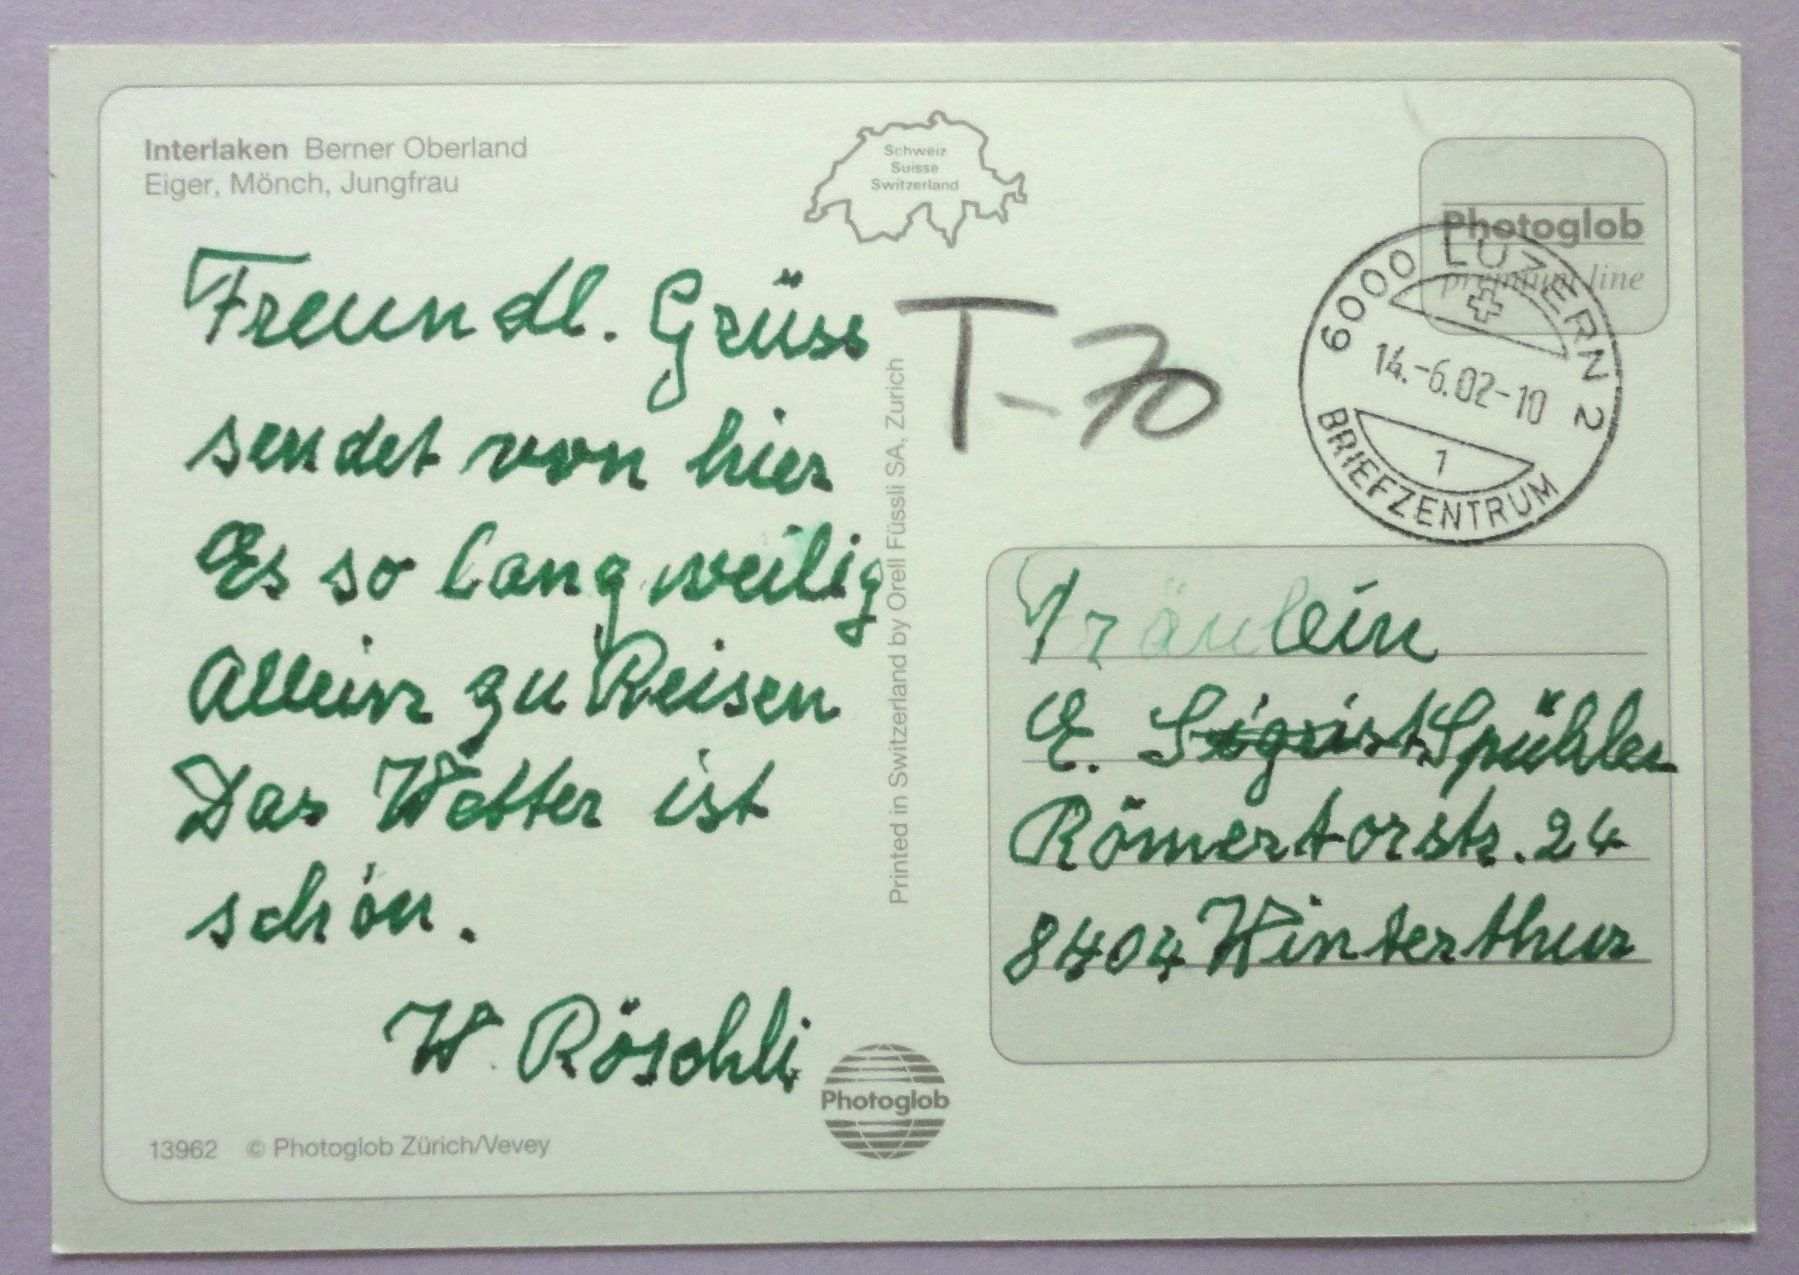 Interlaken Berner Oberland
Eiger, Mönch, Jungfrau
Schweiz
Suisse
Switzerland
Photoglob
premium line
6000 LUZERN 2
14.-6.02-10
1
BRIEFZENTRUM
T-70
Freundl. Grüss
sendet von hier
Es so langweilig
Allein zu Reisen
Das Wetter ist
schön.
W. Röschli
Printed in Switzerland by Orell Füssli SA, Zurich
Fräulein
E. Sigrist Spühler
Römertorstr. 24
8404 Winterthur
Photoglob
13962 © Photoglob Zürich/Vevey